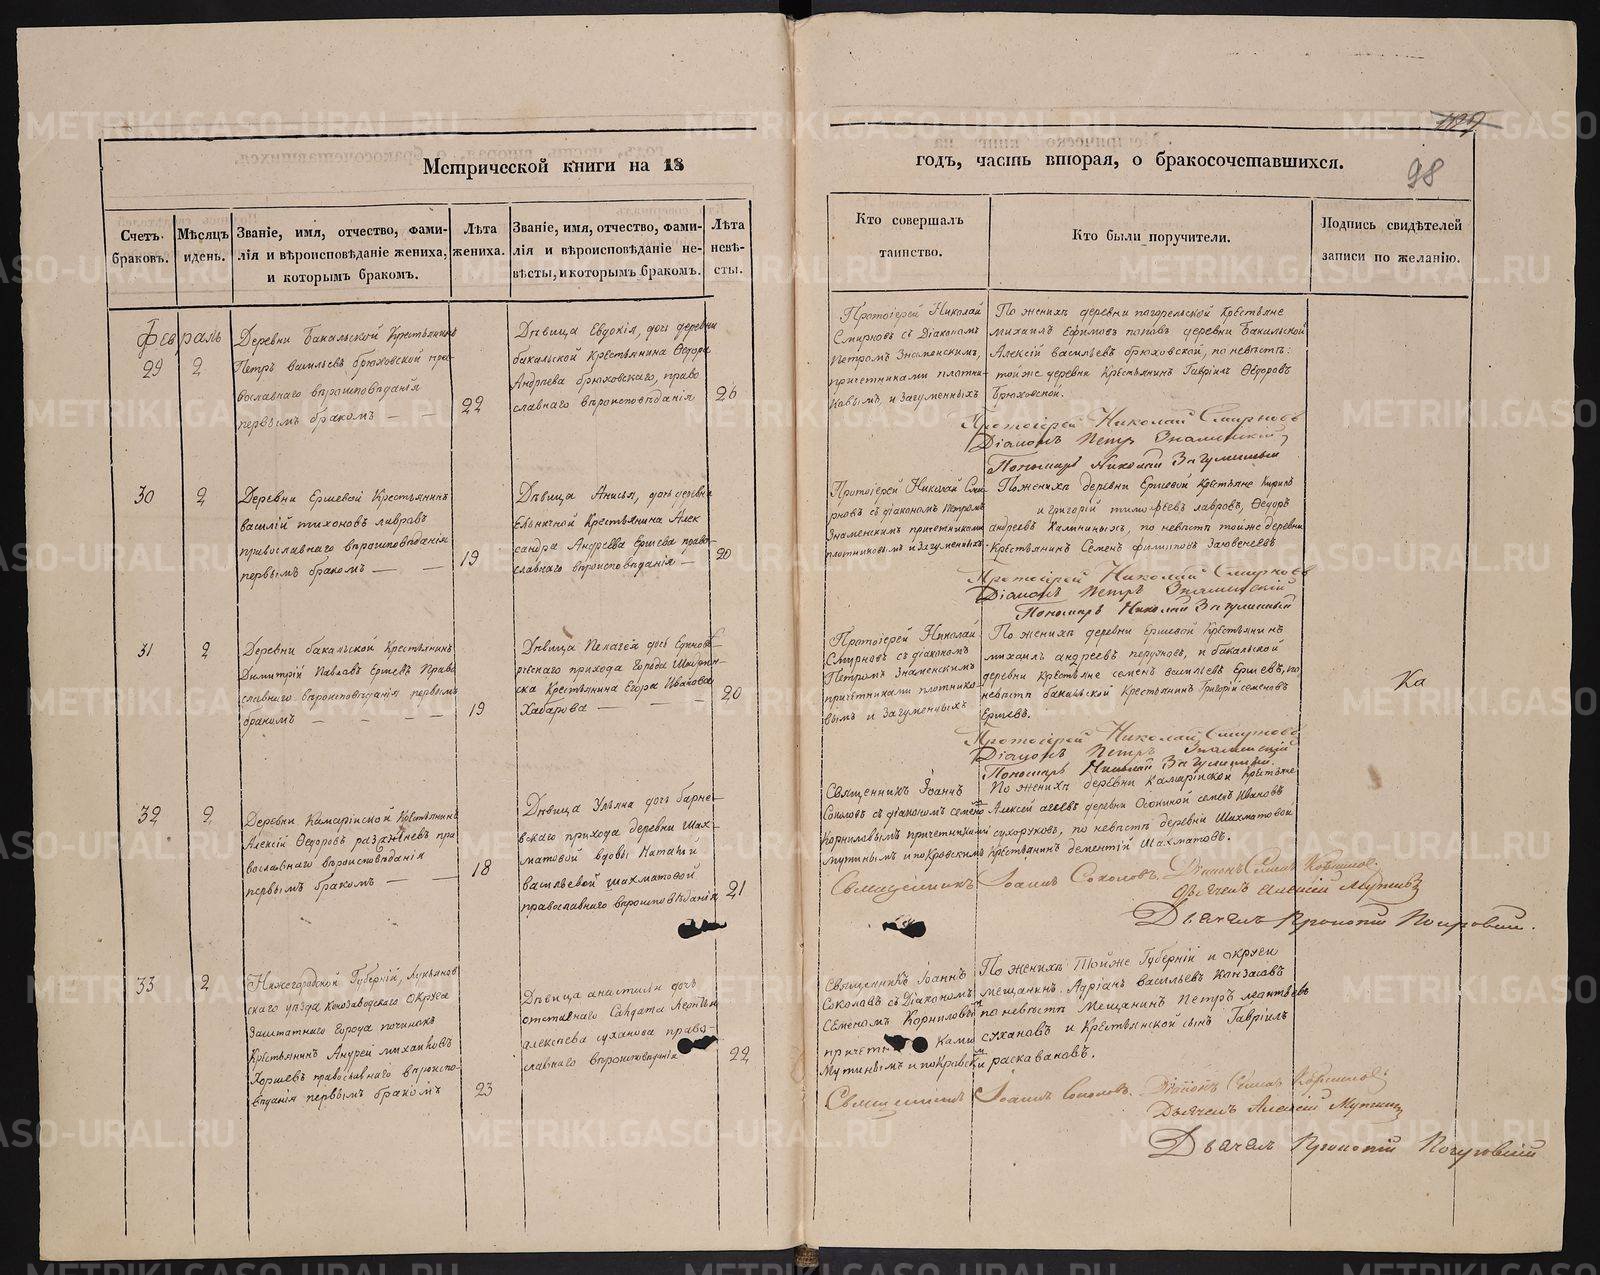 Метрической книги на 18
годъ, часть вторая, о бракосочетавшихся.
98
Счетъ браковъ.
Мѣсяцъ и день.
Званіе, имя, отчество, фами-
лія и вѣроисповѣданіе жениха,
и которымъ бракомъ.
Лѣта
жениха.
Званіе, имя, отчество, фами-
лія и вѣроисповѣданіе не-
вѣсты, и которымъ бракомъ.
Лѣта
невѣ-
сты.
Кто совершалъ
таинство.
Кто были поручители.
Подпись свидѣтелей
записи по желанію.
Февраль
29
2
Деревни Бакальской Крестьянинъ
Петръ васильевъ брюховской пра-
вославнаго вѣроисповѣданія
первымъ бракомъ — —
22
Дѣвица Евдокія, дочь деревни
бакальской Крестьянина Ѳедора
Андреева брюховскаго, право
славнаго вѣроисповѣданія
26
Протоіерей Николай
Смирновъ съ Діакономъ
Петромъ Знаменскимъ,
причетниками плотни-
ковымъ, и Загуменныхъ
По женихѣ деревни погорельской Крестьяне
михаилъ Ефимовъ поповъ деревни Бакальской
Алексій васильевъ брюховской, по невѣстѣ:
тойже деревни Крестьянинъ Гавріилъ Ѳедоровъ
Брюховской.
Протоіерей Николай Смирновъ
Діаконъ Петръ Знаменскій
Пономарь Николай Загуменный
30
2
Деревни Ершевой Крестьянинъ
василій тихоновъ лавровъ
православнаго вѣроисповѣданія
первымъ бракомъ — —
19
Дѣвица Анисья, дочь деревни
Ельничной Крестьянина Алек
сандра Андреева Ершева право-
славнаго вѣроисповѣданія —
20
Протоіерей Николай Сми-
рновъ съ діакономъ Петромъ
Знаменскимъ причетниками
плотниковымъ и Загуменныхъ
По женихѣ деревни Ершевой Крестьяне
и григорій тимофѣевъ лавровъ, Ѳедоръ
андреевъ Калининыхъ, по невѣстѣ тойже деревни
Крестьянинъ Семенъ филиповъ
Протоіерей Николай Смирновъ
Діаконъ Петръ Знаменскій
Пономарь Николай Загуменный
31
2
Деревни бакальской Крестьянинъ
Димитрій Павловъ Ершевъ Право
славнаго вѣроисповѣданія первымъ
бракомъ — — — —
19
Дѣвица Пелагея дочь Единовѣ-
рческаго прихода города Шадрин-
ска Крестьянина Егора Иванова
Хабарова — — —
20
Протоіерей Николай
Смирновъ съ діакономъ
Петромъ Знаменскимъ
причетниками плотнико-
вымъ и Загуменныхъ
По женихѣ деревни Ершевой Крестьянинъ
михаилъ андреевъ перуновъ, и бакальской
деревни Крестьяне семенъ васильевъ Ершевъ, по
невѣстѣ бакальской Крестьянинъ Григорій семеновъ
Ершевъ.
Ка
Протоіерей Николай Смирновъ
Діаконъ Петръ Знаменскій
Пономарь Николай Загуменный.
32
2
Деревни Камарійской Крестьянинъ
Алексій Ѳедоровъ пра
вославнаго вѣроисповѣданія
первымъ бракомъ — —
18
Дѣвица Ульяна дочь барне-
вскаго прихода деревни шах-
матовой вдовы Наталіи
васильевой шахматовой
православнаго вѣроисповѣданія
21
Священникъ Іоаннъ
Соколовъ съ діакономъ семеномъ
Корниловымъ причетниками
Мутинымъ и покровскимъ
По женихѣ деревни Камарійской Крестьяне
Алексій агеевъ деревни Осокиной семенъ Ивановъ
сухоруковъ, по невѣстѣ деревни Шахматовой
Крестьянинъ дементій Шахматовъ.
Священникъ Іоаннъ Соколовъ. Діаконъ Семенъ Корниловъ.
Дьячекъ Алексій Мутинъ
Дьячекъ Прокопій Покровскій.
33
2
Нижегородской Губерніи, Лукьянов
скаго уѣзда Конозаводскаго округа
Заштатнаго города починокъ
Крестьянинъ Андрей михаиловъ
Горшевъ православнаго вѣроиспо-
вѣданія первымъ бракомъ
23
Дѣвица анастасія дочь
отставнаго Салдата Леонтія
алексѣева суханова право-
славнаго вѣроисповѣданія
22
Священникъ Іоаннъ
Соколовъ съ Діакономъ
Семеномъ Корниловымъ
причетниками
Мутинымъ и покровскимъ
По женихѣ тойже Губерніи и округи
мещанинъ Адріанъ васильевъ
по невѣстѣ Мещанинъ Петръ леонтьевъ
сухановъ и Крестьянской сынъ Гавріилъ
раскавановъ.
Священникъ Іоаннъ Соколовъ. Діаконъ Семенъ Корниловъ
Дьячекъ Алексій Мутинъ
Дьячекъ Прокопій Покровскій
METRIKI.GASO-URAL.RU